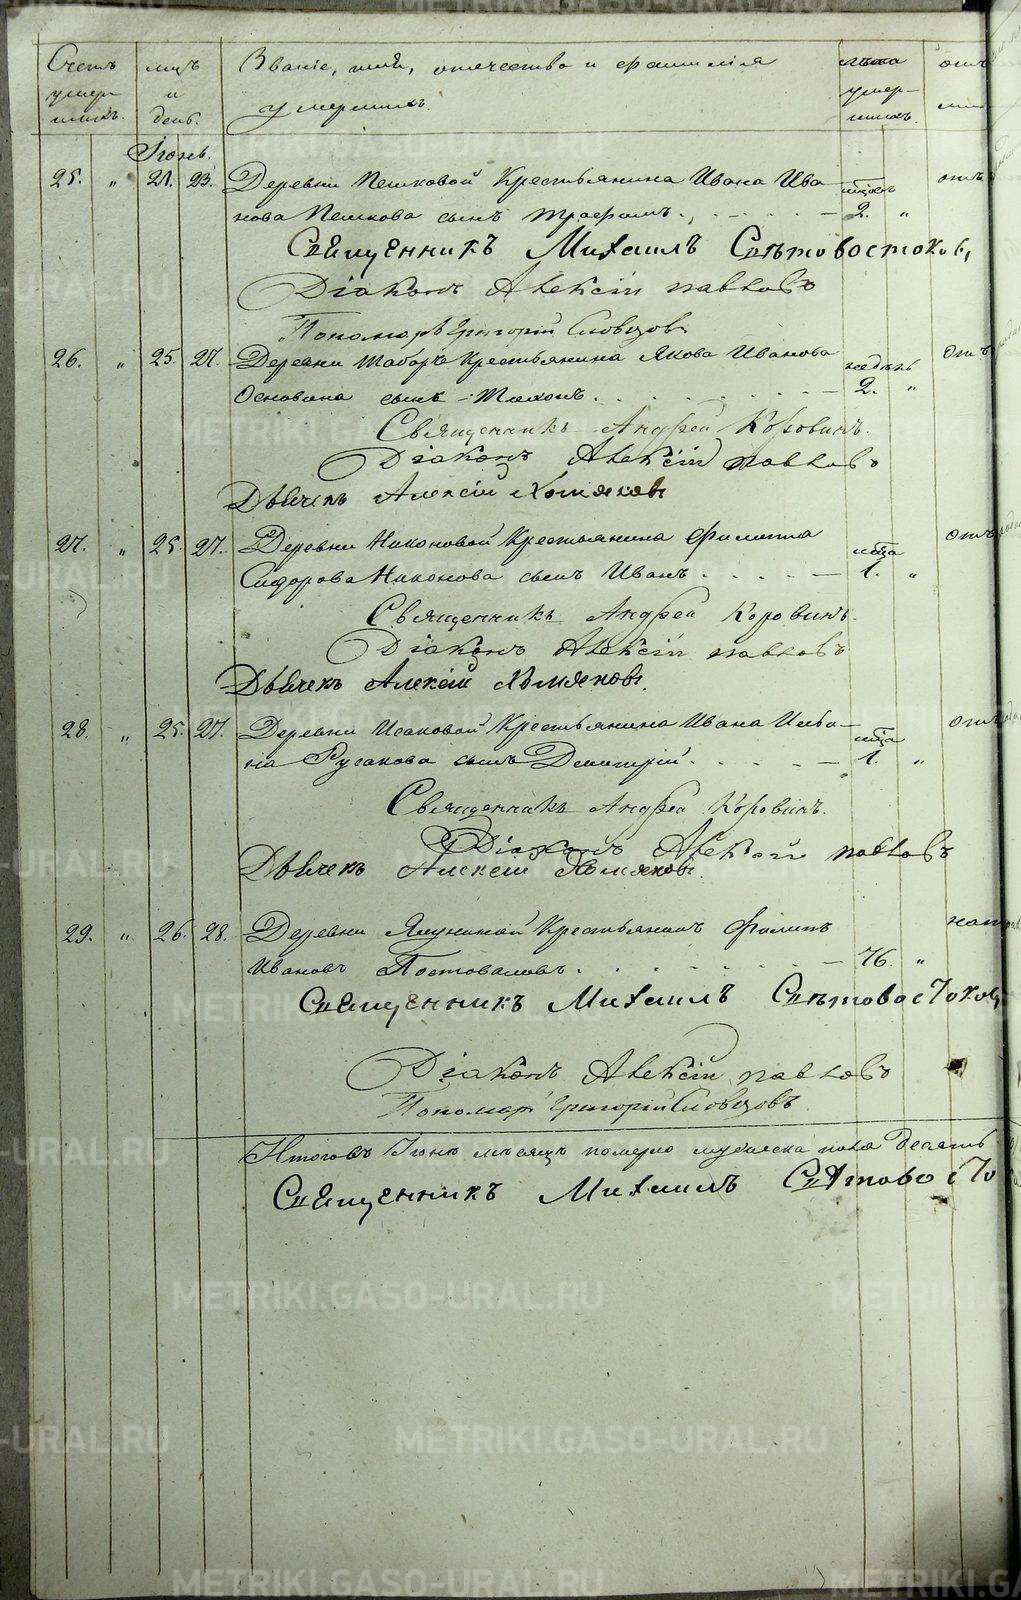 Счетъ умер- шихъ.
мцъ и день.
Званіе, имя, отчество и фамилія умершихъ.
лѣта умер- шихъ.
отъ
Іюнь.
25. " 21. 23. Деревни Пешковой Крестьянина Ивана Ива- мцовъ отъ
нова Пешкова сынъ Трофимъ. 2. "
Священникъ Михаилъ Свѣтовостоковъ
Діаконъ Алексій Павловъ
Пономарь Григорій Словцовъ
26. " 25. 27. Деревни Табары Крестьянина Якова Иванова недѣль отъ
Основина сынъ Тихонъ. 2. "
Священникъ Андрей Коровинъ.
Діаконъ Алексій Павловъ
Дьячекъ Алексій Хомяковъ
27. " 25. 27. Деревни Никоновой Крестьянина Филиппа мца отъ
Сидорова Никонова сынъ Иванъ. 1. "
Священникъ Андрей Коровинъ.
Діаконъ Алексій Павловъ
Дьячекъ Алексій Хомяковъ.
28. " 25. 27. Деревни Исаковой Крестьянина Ивана мца отъ
Русакова сынъ Димитрій. 1. "
Священникъ Андрей Коровинъ.
Діаконъ Алексій Павловъ
Дьячекъ Алексій Хомяковъ.
29. " 26. 28. Деревни Крестьянинъ Филипъ
Ивановъ Постоваловъ. 76. "
Священникъ Михаилъ Свѣтовостоковъ
Діаконъ Алексій Павловъ
Пономарь Григорій Словцовъ
Итого въ Іюнѣ мѣсяцѣ померло мужеска пола десять
Священникъ Михаилъ Свѣтовосто
METRIKI.GASO-URAL.RU